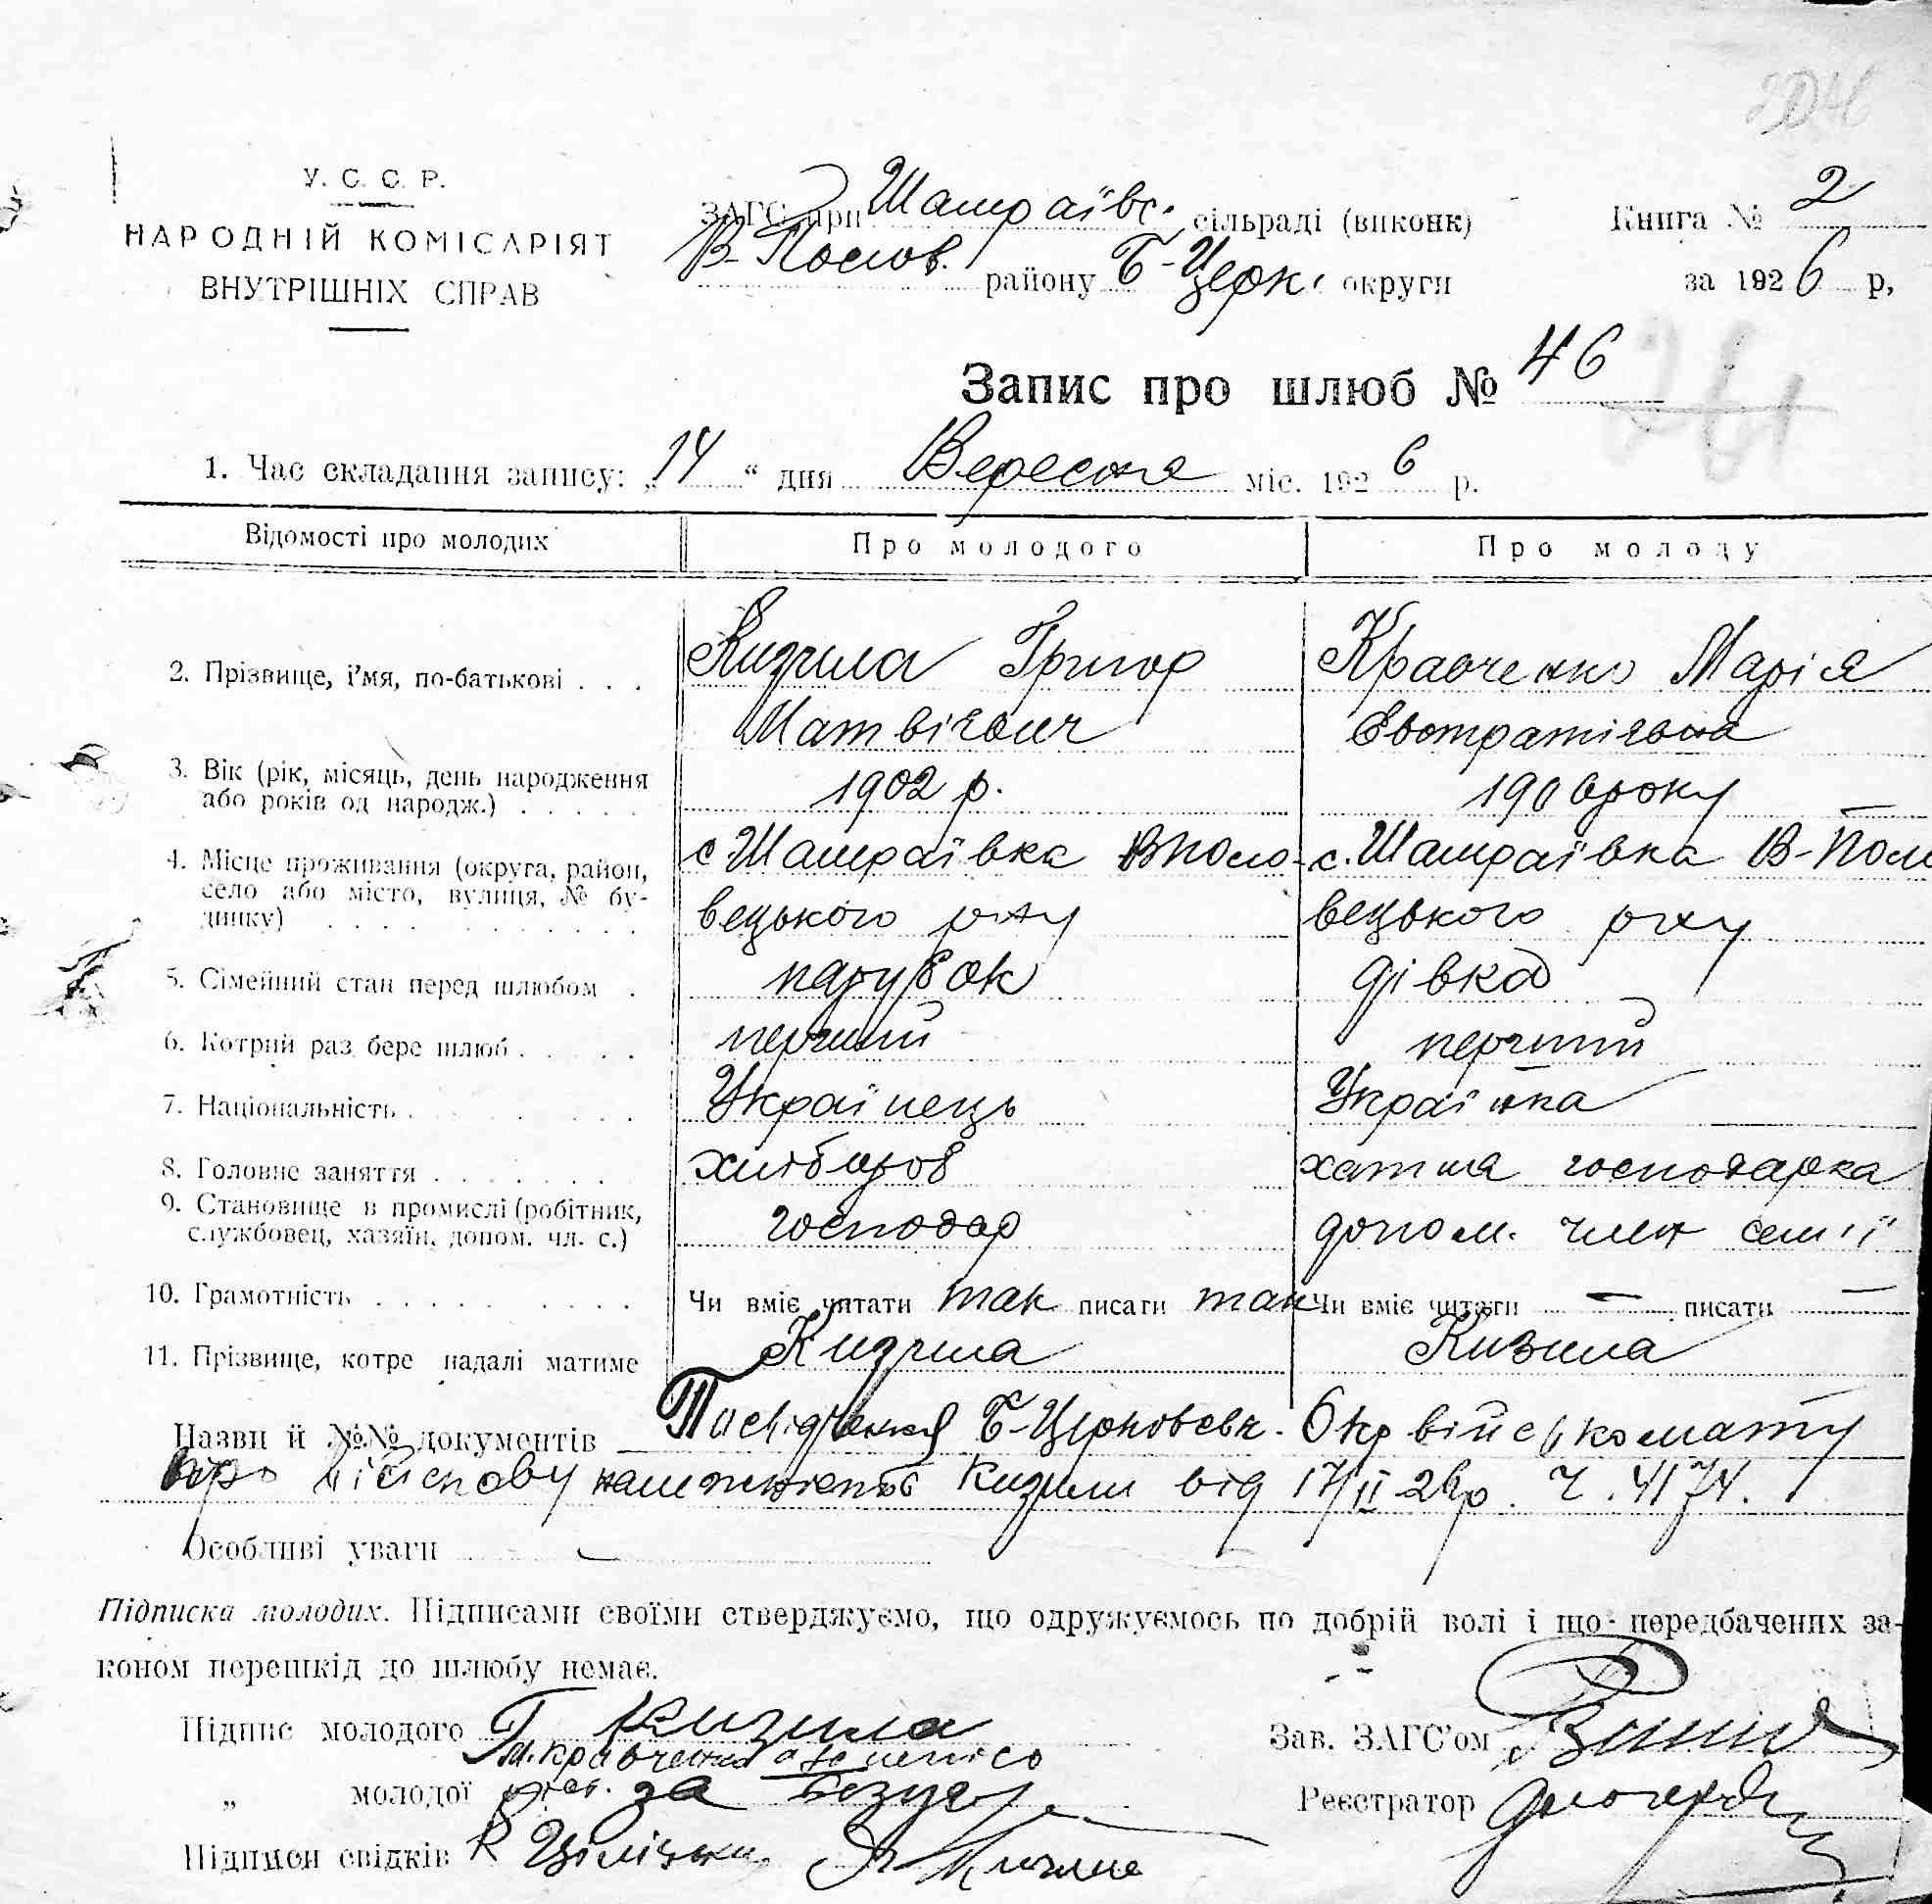 У. С. С. Р.
НАРОДНІЙ КОМІСАРІЯТ
ВНУТРІШНІХ СПРАВ
ЗАГС при Шамраївс. сільраді (виконк)
Книга № 2
В-Полов. району Б-Церк. округи
за 1926 р,
Запис про шлюб № 46
1. Час складання запису: „14“ дня Вересня міс. 1926 р.
Відомості про молодих
Про молодого
Про молоду
2. Прізвище, і'мя, по-батькові . . .
Кизима Григор
Матвієвич
Кравченко Марія
Євстратієвна
3. Вік (рік, місяць, день народження
або років од народж.) . . . . .
1902 р.
1906 року
4. Місце проживання (округа, район,
село або місто, вулиця, № бу-
динку)
с Шамраївка В Поло-
вецького р-ну
с. Шамраївка В-Поло
вецького р-ну
5. Сімейний стан перед шлюбом .
парубок
дівка
6. Котрий раз бере шлюб . . . .
перший
перший
7. Національність
Українець
Українка
8. Головне заняття
хлібороб
хатня господарка
9. Становище в промислі (робітник,
службовец, хазяїн, допом. чл. с.)
господар
допом. член семії
10. Грамотність
Чи вміє читати так писати так
Чи вміє читати — писати —
11. Прізвище, котре надалі матиме
Кизима
Кизима
Назви й №№ документів Посвідчення Б-Церковськ. Окр військомату
про військову належність Кизими від 17/II 26р. Ч. 4174.
Особливі уваги —
Підписка молодих. Підписами своїми стверджуємо, що одружуємось по добрій волі і що передбачених за-
коном перешкід до шлюбу немає.
Підпис молодого Г Кизима
Зав. ЗАГС'ом
М. Кравченко а за неписо
„ молодої за
Реєстратор
Підписи свідків Кизима